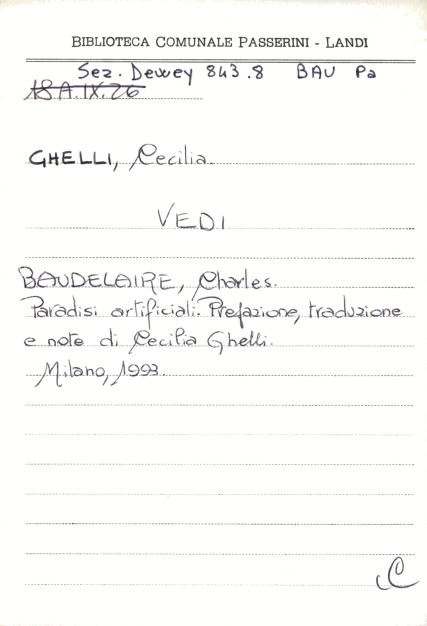 BIBLIOTECA COMUNALE PASSERINI - LANDI
Sez. Dewey 843.8 BAU Pa
18 A.IX.26
GHELLI, Cecilia.
VEDI
BAUDELAIRE, Charles.
Paradisi artificiali. Prefazione, traduzione
e note di Cecilia Ghelli.
Milano, 1993.
C